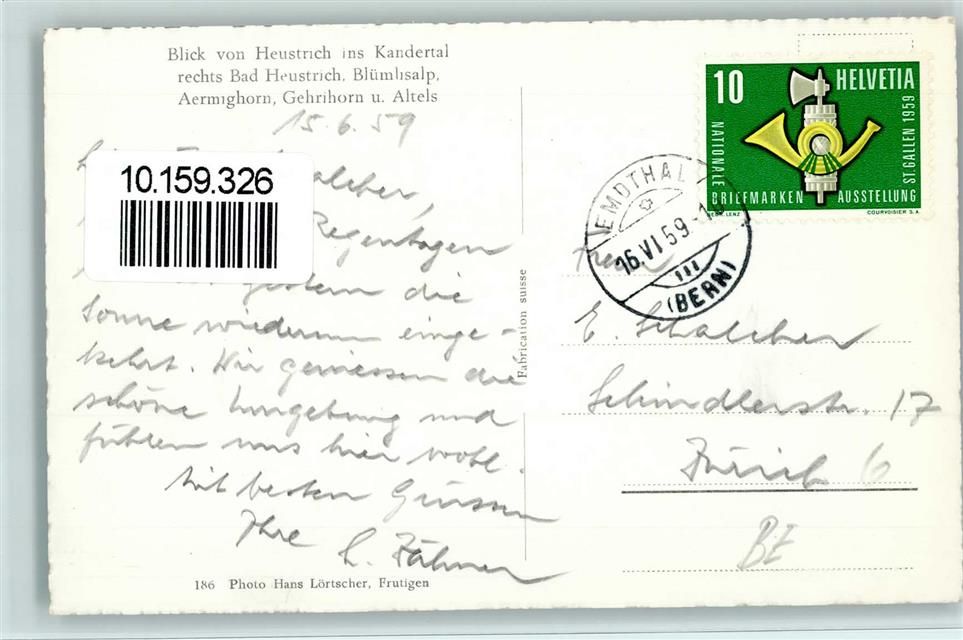 Blick von Heustrich ins Kandertal
rechts Bad Heustrich, Blümlisalp,
Aermighorn, Gehrihorn u. Altels
15.6.59
10.159.326
Regentagen
gestern die
Sonne wiederum einge-
kehrt. Wir geniessen die
schöne Umgebung und
fühlen uns hier wohl.
Mit besten Grüssen
Ihre
186 Photo Hans Lörtscher, Frutigen
Fabrication suisse
10 HELVETIA
NATIONALE
BRIEFMARKEN AUSSTELLUNG
ST. GALLEN 1959
LENZ
COURVOISIER S.A.
EMDTHAL
16.VI 59
(BERN)
E. Schalcher
Schindlerstr. 17
Zürich 6
BE